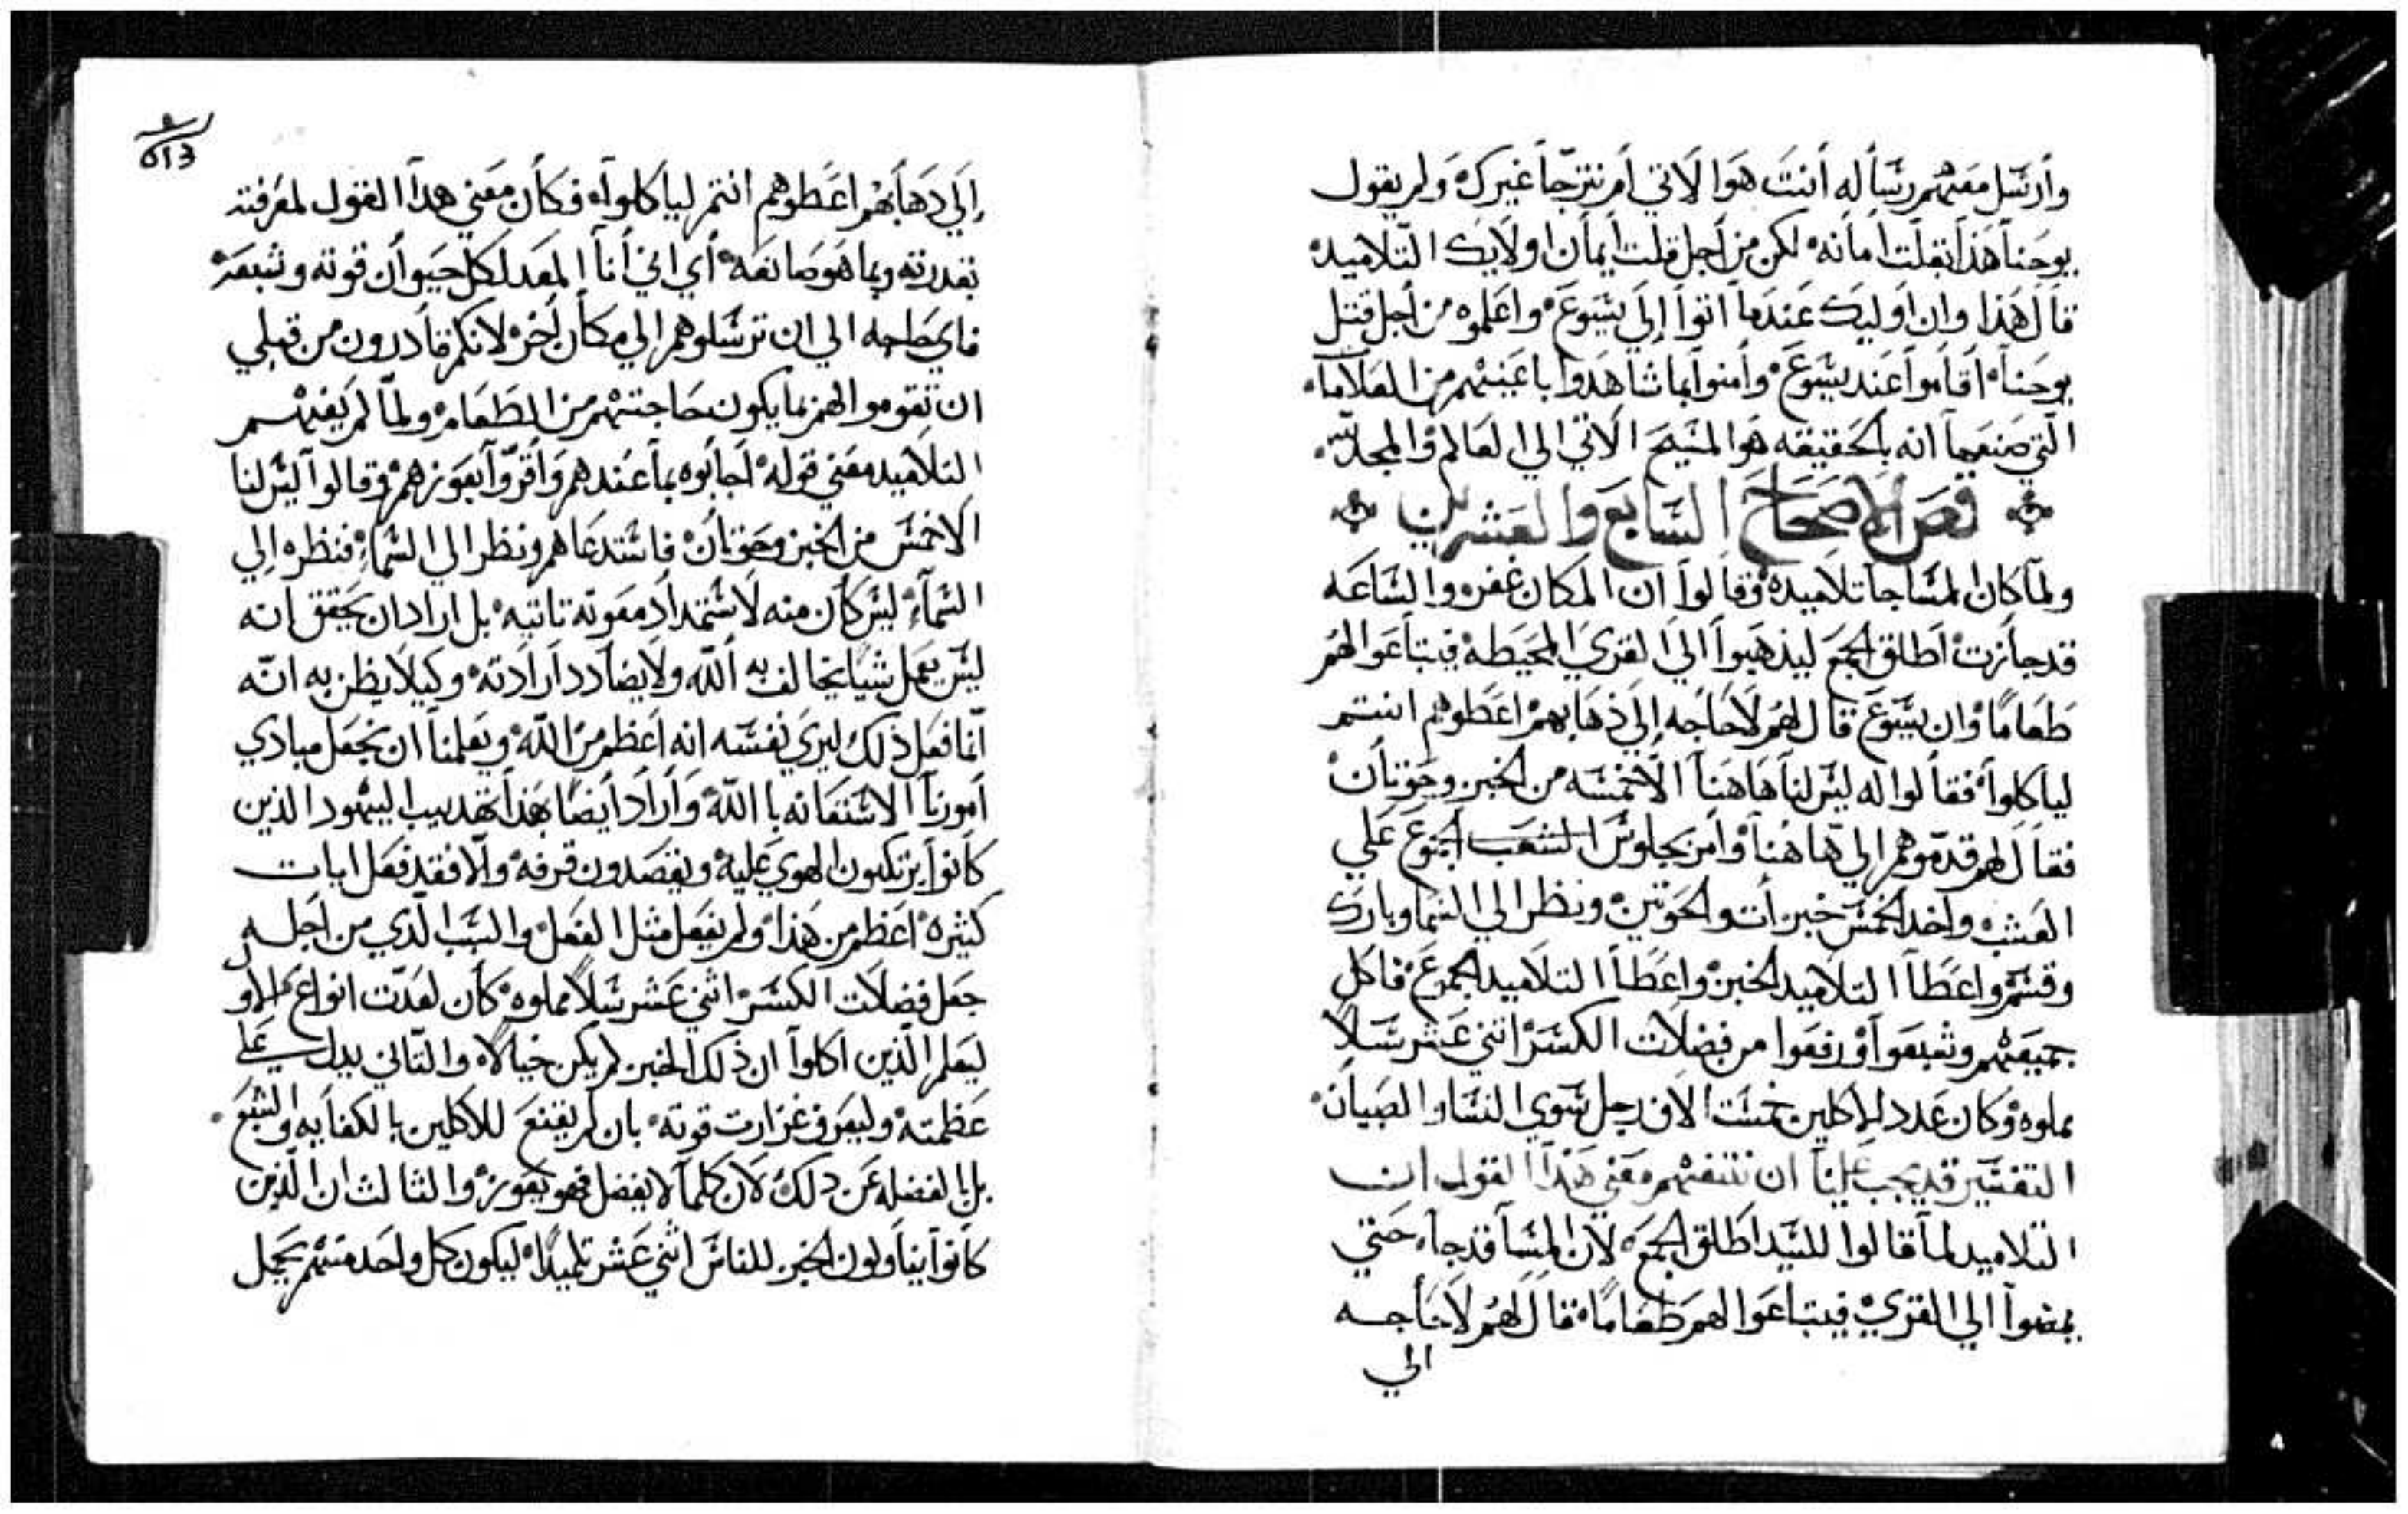 وأرسل معهم رسأله أنت هوا الاتي أم نترجأ غيرك ولم يقول
يوحنا هذا بقلت امأنه لكن من أجل قلت أيمان اولايك التلاميد
قال هذا وان اوليك عندما اتوا إلي يسوع واعلموه من أجل قتل
يوحنا اقاموا عند يسوع وأمنوا بما شاهدوا باعينهم من العلامات
التي صنعها انه بالحقيقه هوا المسيح الاتي الي العالم والمجد لله
فص الاصحاح السابع والعشرين
ولما كان المسا جا تلاميده وقالوا ان المكان غفر والساعه
قد جازت اطلق الجمع ليذهبوا الي القري المحيطه فيبتاعوا لهم
طعاما وان يسوع قال لهم لا حاجه إلي ذهابهم اعطوهم انتم
لياكلوا فقالوا له ليس لنا هاهنا الا خمسه من الخبز وحوتان
فقال لهم قدموهم الي هاهنا وأمر بجلوس الشعب اجمع علي
العشب واخد الخمس خبزات والحوتين ونظر الي السما وبارك
وقسم واعطا التلاميد الخبز واعطا التلاميد الجموع فاكل
جميعهم وشبعوا ورفعوا من فضلات الكسر اثني عشر سلا
مملوه وكان عدد الاكلين خمست الاف رجل سوي النسا والصبيان
التفسير قد يجب علينا ان نتفهم معني هذا القول ان
التلاميد لما قالوا للسيد اطلق الجمع لان المسا قد جا حتي
يمضوا الي القري فيبتاعوا لهم طعاما قال لهم لا حاجه
الي
إلي دهابهم اعطوهم انتم لياكلوا فكان معني هدا القول لمعرفته
بقدرته وبما هو صانعه أي اني أنا المعد لكل حيوان قوته وشبعه
فاي حاجه الي ان ترسلوهم الي مكان أخر لانكم قادرون من قبلي
ان تقوموا لهم بما يكون حاجتهم من الطعام ولما لم يفهم
التلاميد معني قوله اجابوه بما عندهم واقروا بعوزهم وقالوا ليس لنا
الا خمس من الخبز وحوتان فاستدعاهم ونظر الي السماء فنظره إلي
السماء ليس كان منه لاستمداد معونه تاتيه بل اراد ان يحقق انه
ليس يعمل شيا يخالف به الله ولا يضادد ارادته وكيلا يظن به انه
انما فعل ذلك ليري نفسه انه اعظم من الله ويعلمنا ان نجعل مبادي
أمورنا الاستعانه با الله وأراد أيضا بهذا تهديب اليهود الذين
كانوا يرتكبون الهوي عليه ويقصدون قرفه والا فقد فعل ايات
كثيره اعظم من هذا ولم يفعل مثل الفعل والسبب الدي من اجله
جعل فضلات الكسر اثني عشر سلا مملوه كان لعدت انواع الاول
ليعلم الذين اكلوا ان ذلك الخبز لم يكن خيالا والتاني يدل علي
عظمته وليعرف غزارت قوته بان لم يقنع للاكلين بالكفايه والشبع
بل بالفضله عن دلك لان كلما لا يفضل فهو يعوز والثالث ان الذين
كانوا يناولون الخبز للناس اثني عشر تلميدا ليكون كل واحد منهم يحمل